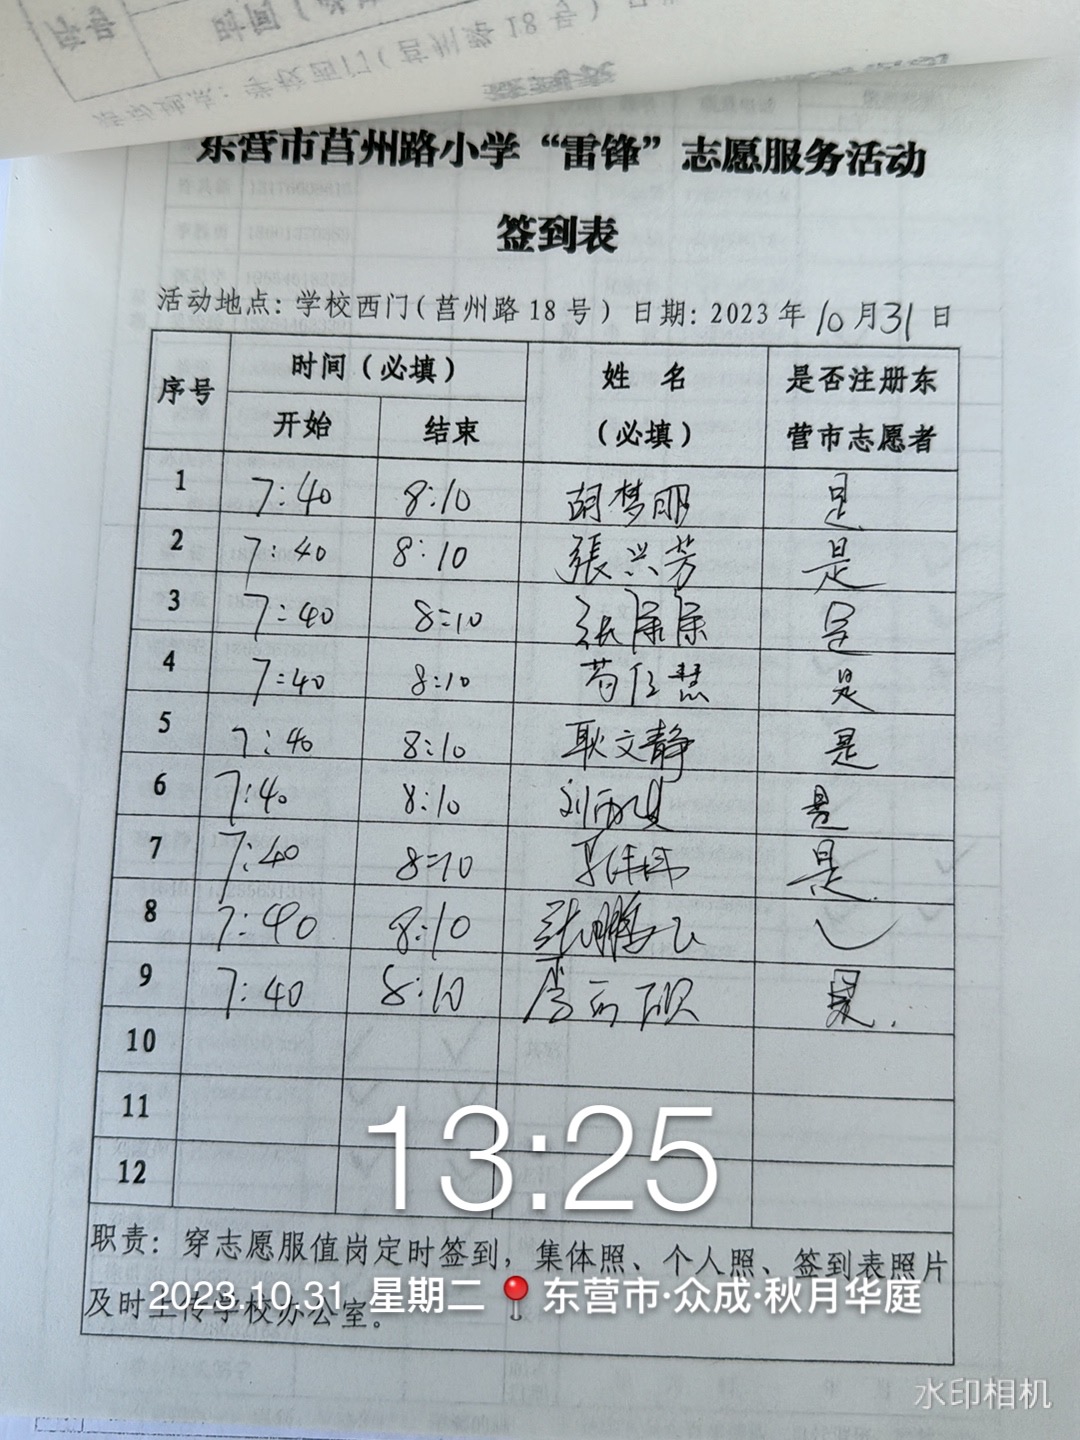 东营市莒州路小学“雷锋”志愿服务活动
签到表
活动地点：学校西门（莒州路18号）日期：2023年10月31日
序号 时间（必填） 姓 名 是否注册东
开始 结束 （必填） 营市志愿者
1 7:40 8:10 胡梦丽 是
2 7:40 8:10 張兴芳 是
3 7:40 8:10 张 是
4 7:40 8:10 慧 是
5 7:40 8:10 耿文静 是
6 7:40 8:10 刘 是
7 7:40 8:10 是
8 7:40 8:10 张鹏飞 ✓
9 7:40 8:10 是.
10
11
12
13:25
职责：穿志愿服值岗定时签到，集体照、个人照、签到表照片
及时上传学校办公室。
2023.10.31 星期二 东营市·众成·秋月华庭
水印相机